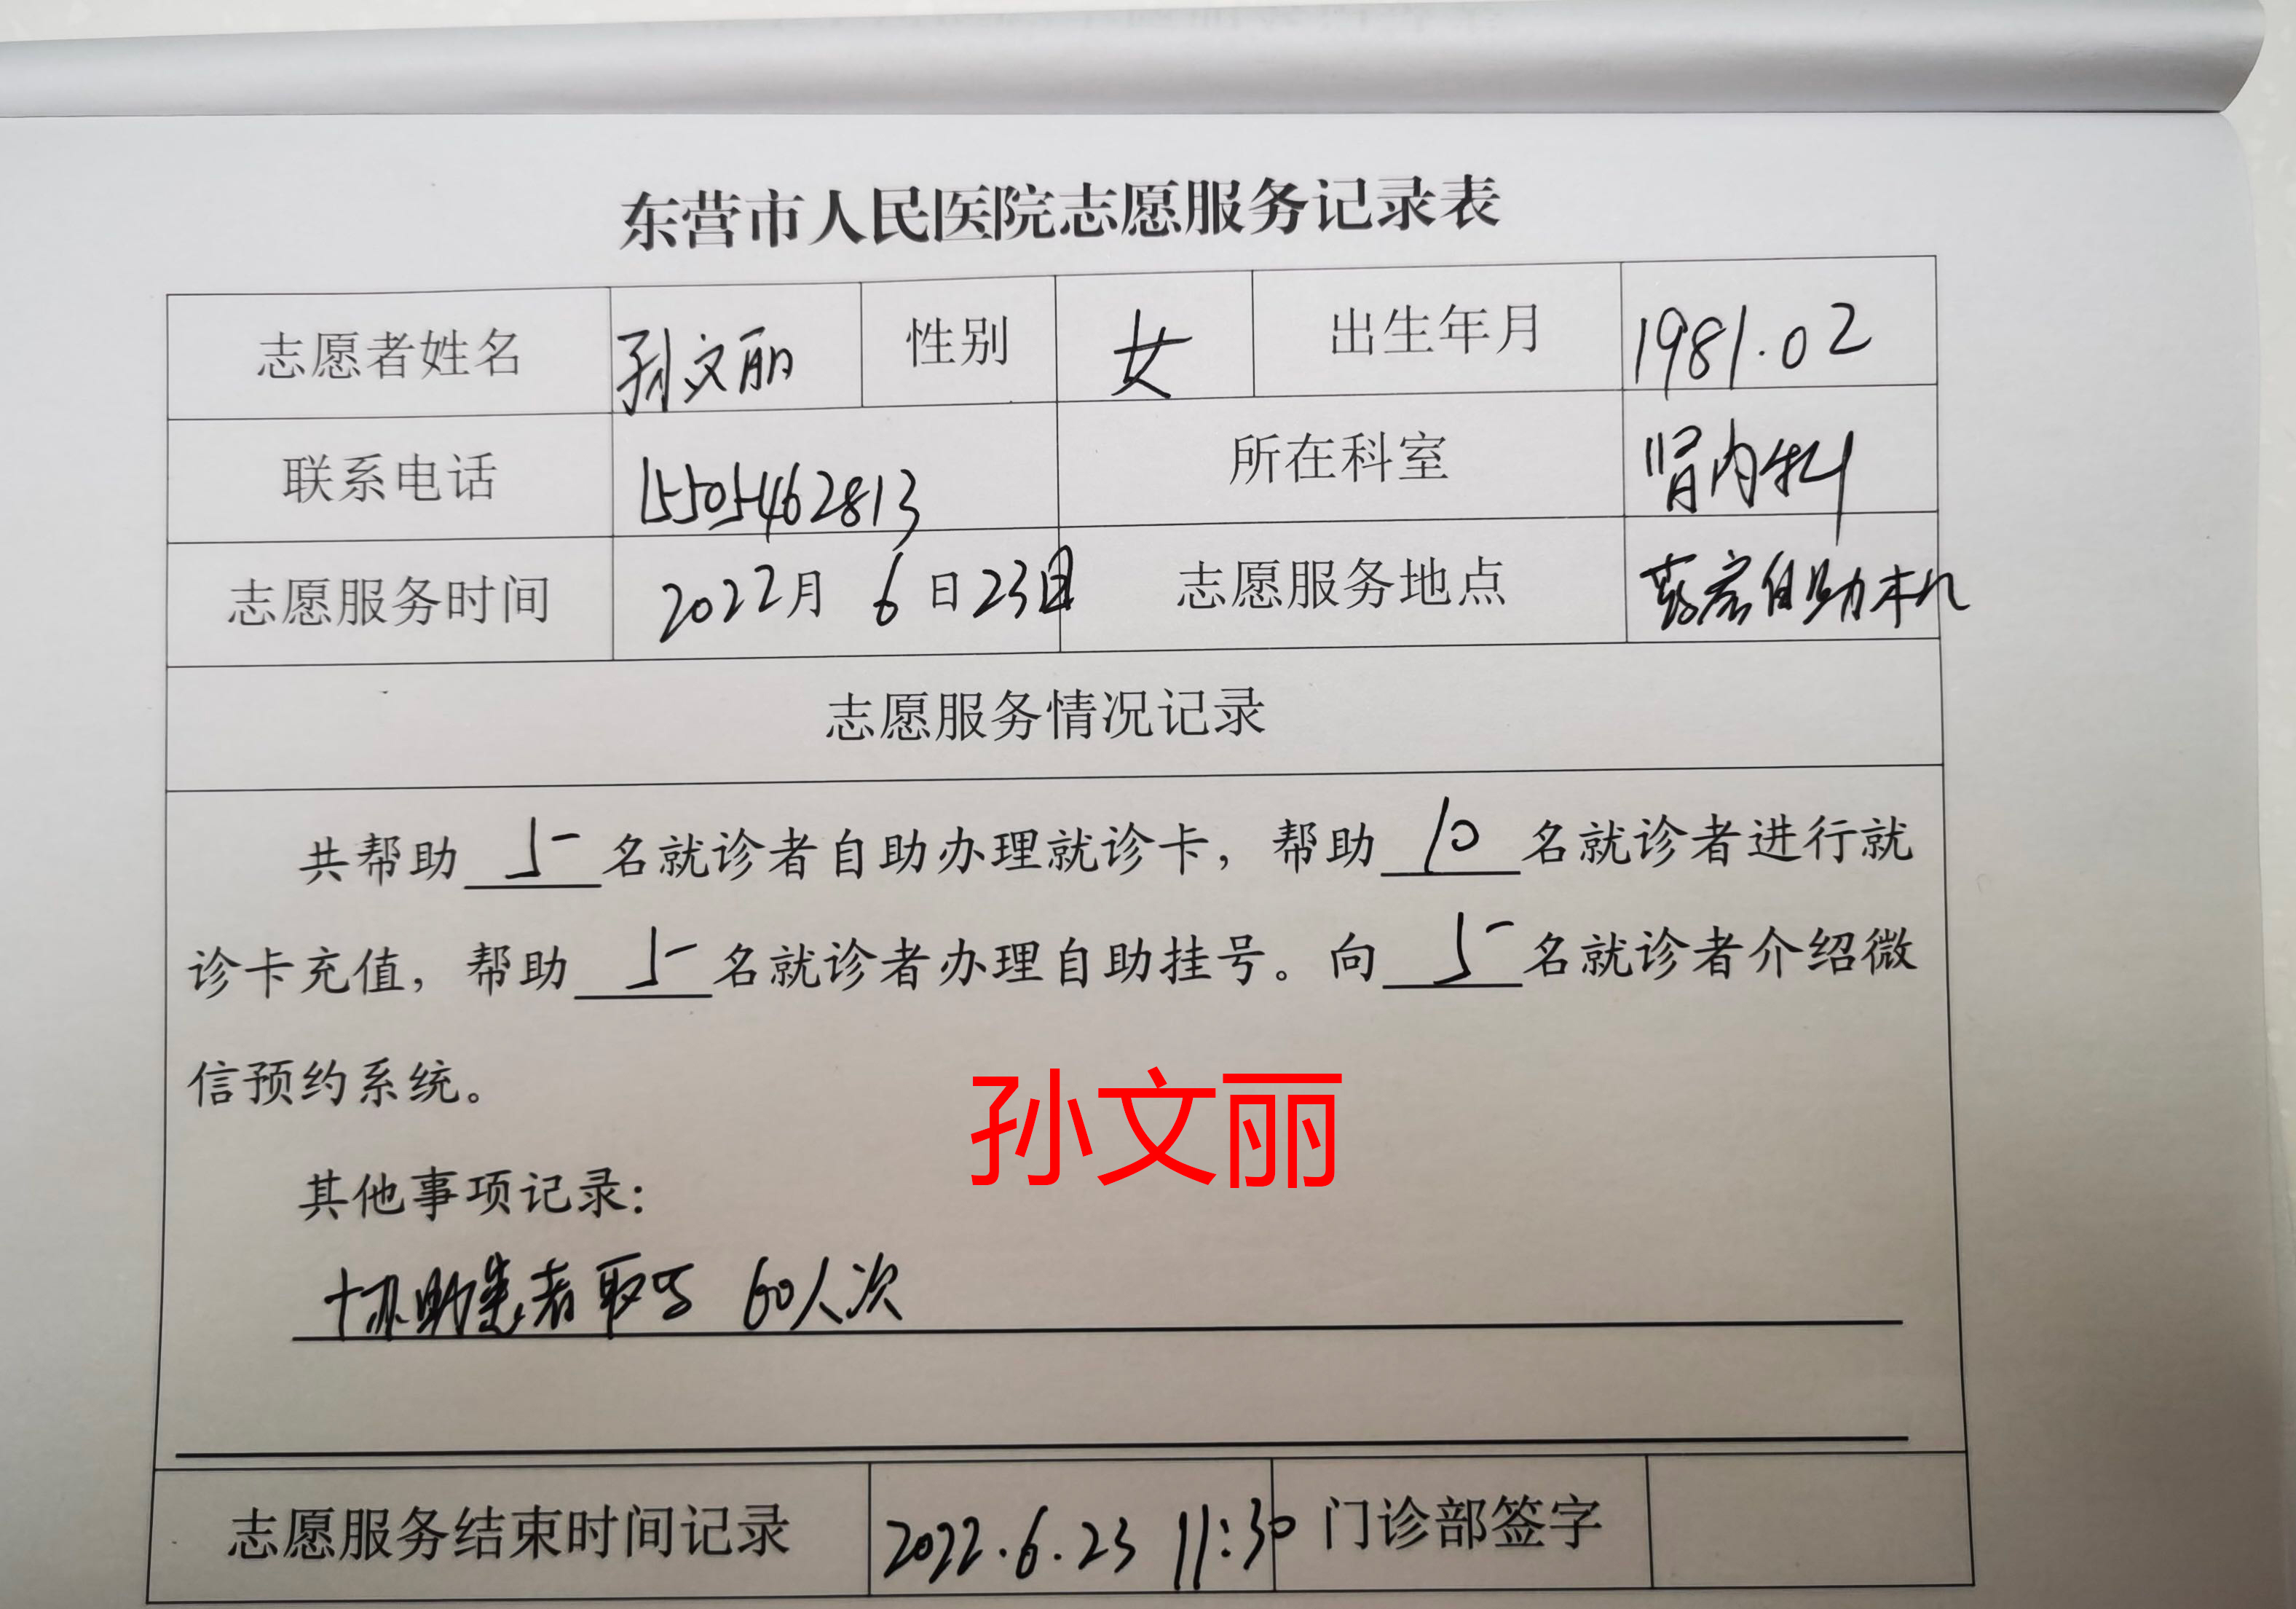 东营市人民医院志愿服务记录表
志愿者姓名 孙文丽 性别 女 出生年月 1981.02
联系电话 15505462813 所在科室 肾内科
志愿服务时间 2022月 6日23日 志愿服务地点 自助机
志愿服务情况记录
共帮助 5 名就诊者自助办理就诊卡，帮助 10 名就诊者进行就
诊卡充值，帮助 5 名就诊者办理自助挂号。向 5 名就诊者介绍微
信预约系统。
孙文丽
其他事项记录：
协助患者取号 60人次
志愿服务结束时间记录 2022.6.23 11:30 门诊部签字